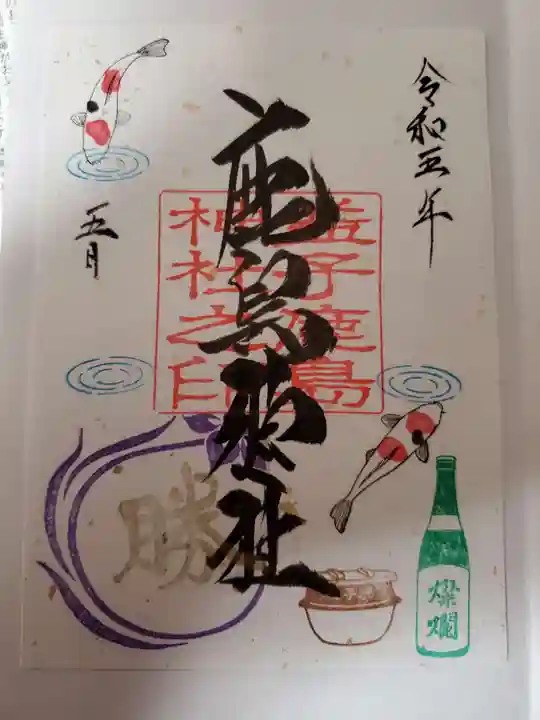 令和五年
鹿島神社
益子鹿島
神社之印
五月
勝
燦爛